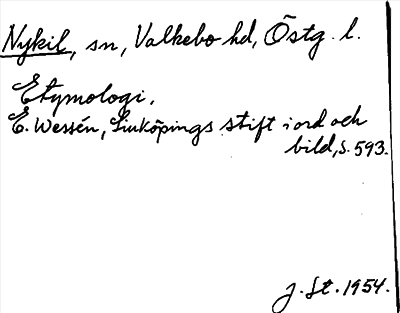 Nykil, sn, Valkebo hd, Östg. l.
Etymologi.
E. Wessén, Linköpings stift i ord och
bild, s. 593.
J. St. 1954.